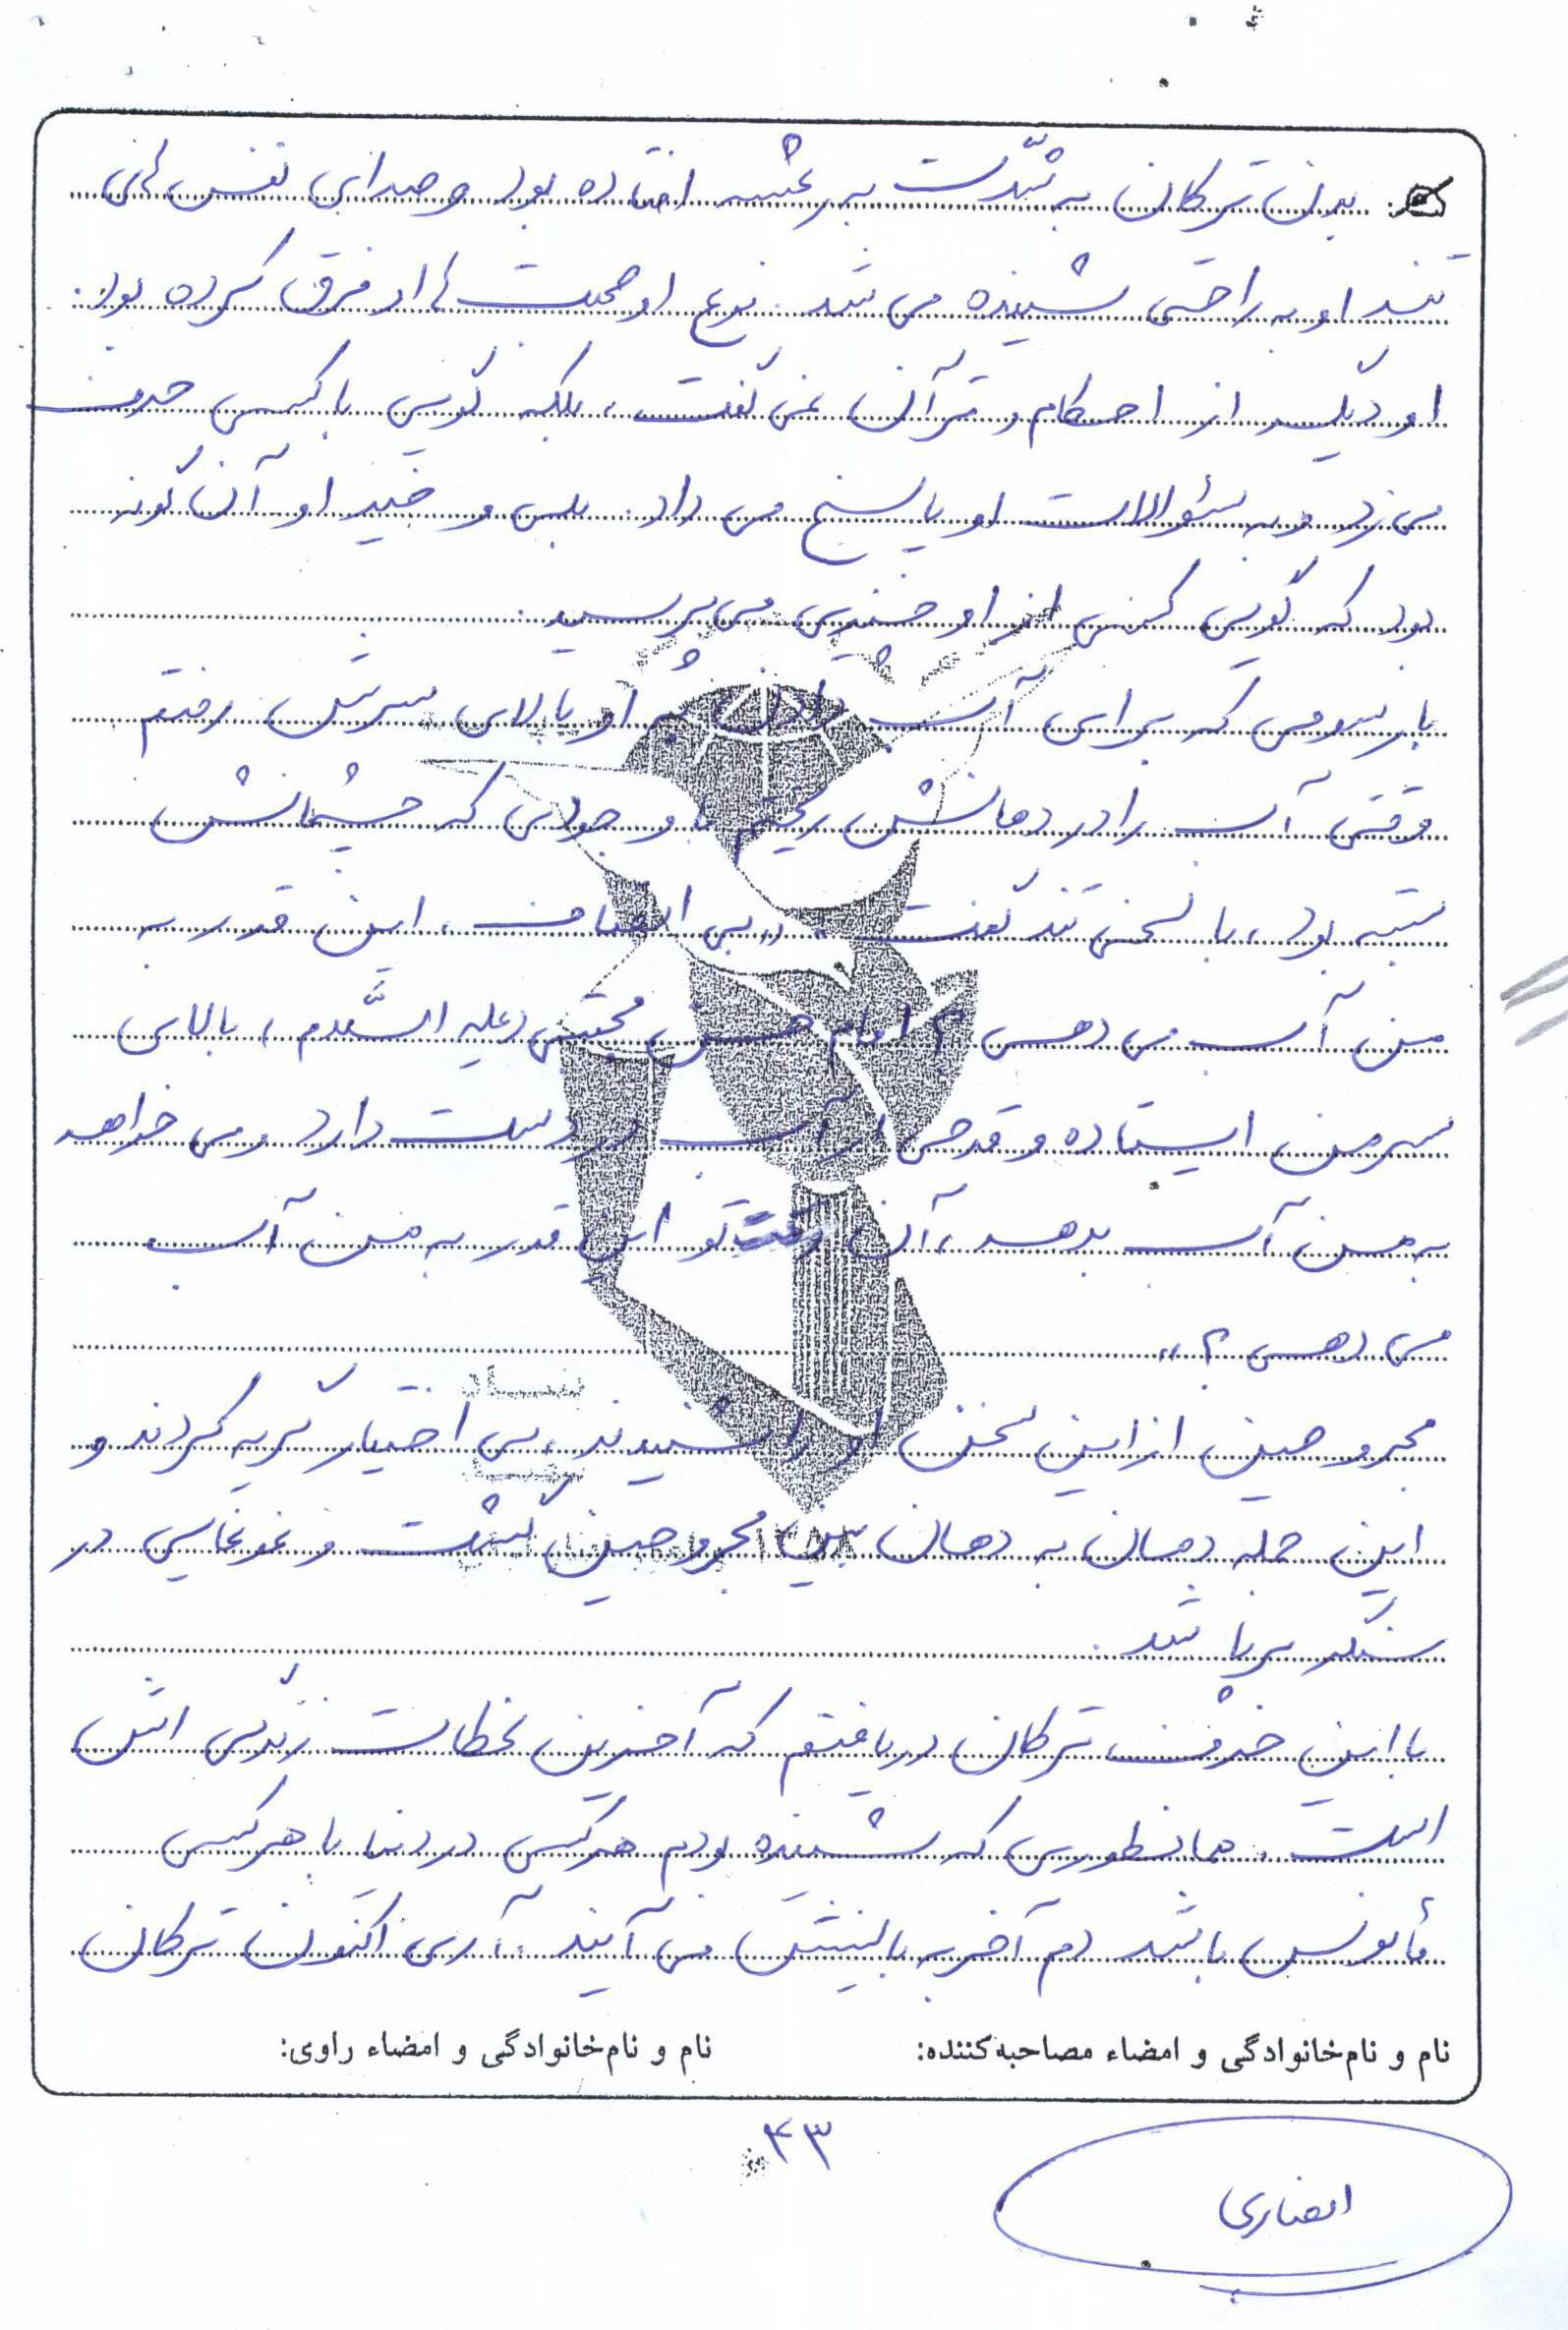 بدن ترکان به شدّت به رعشه افتاده بود و صدای نفس های
تند او به راحتی شنیده می شد. نوع او صحبت ها از فرق کرده بود.
او دیگر از احکام و قرآن نمی گفت، بلکه گویی با کسی حرف
می زد و به سئوالات او پاسخ می داد. بلی و خیر او آن گونه
بود که گویی کسی از او چیزی می پرسید.
بار سومی که برای آب دادن به او بالای سرش رفتم
وقتی آب را در دهانش ریختم با وجودی که چشمانش
بسته بود، با لحن تند گفت: «بی انصاف، این قدر به
من آب می دهی؟ امام حسن مجتبی (علیه السَّلام) بالای
سر من ایستاده و قدحی از آب در دست دارد و می خواهد
به من آب بدهد، آن وقت تو این قدر به من آب
می دهی؟»
مجروحین از این سخن او را شنیدند، بی اختیار گریه کردند و
این جمله دهان به دهان بین مجروحین گشت و غوغایی در
سنگر برپا شد.
با این حرف ترکان دریافتم که آخرین لحظات زندگی اش
است. همانطوری که شنیده بودم هر کس در دنیا با هر کسی
مأنوس باشد دم آخر به بالینش می آیند. آری اکنون ترکان
نام و نام‌خانوادگی و امضاء مصاحبه‌کننده: نام و نام‌خانوادگی و امضاء راوی:
۴۳
انصاری